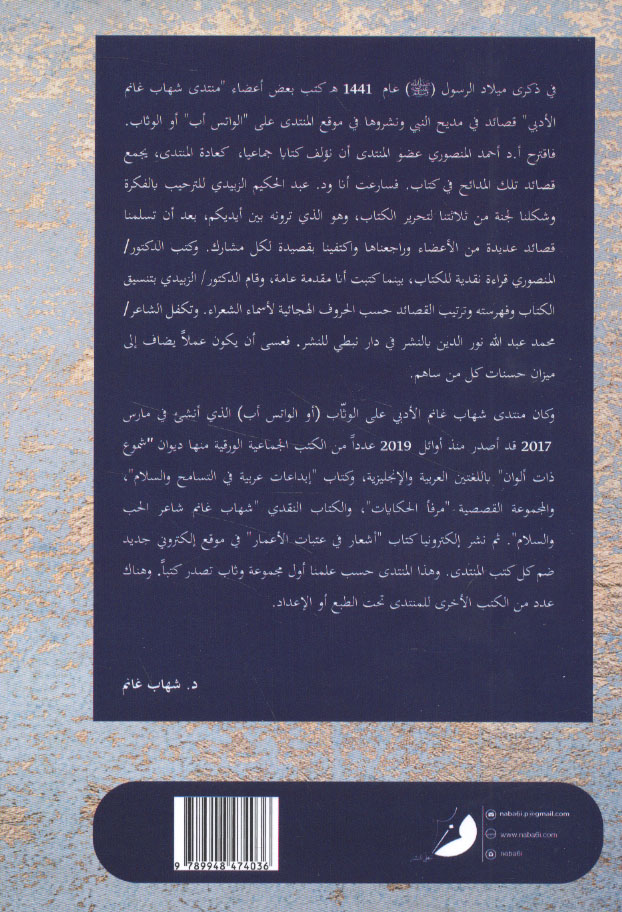 في ذكرى ميلاد الرسول (ﷺ) عام 1441 هـ كتب بعض أعضاء "منتدى شهاب غانم
الأدبي" قصائد في مديح النبي ونشروها في موقع المنتدى على "الواتس أب" أو الوثاب.
فاقترح أ.د أحمد المنصوري عضو المنتدى أن نؤلف كتابا جماعيا، كعادة المنتدى، يجمع
قصائد تلك المدائح في كتاب. فسارعت أنا ود. عبد الحكيم الزبيدي للترحيب بالفكرة
وشكلنا لجنة من ثلاثتنا لتحرير الكتاب، وهو الذي ترونه بين أيديكم، بعد أن تسلمنا
قصائد عديدة من الأعضاء وراجعناها واكتفينا بقصيدة لكل مشارك. وكتب الدكتور/
المنصوري قراءة نقدية للكتاب، بينما كتبت أنا مقدمة عامة، وقام الدكتور/ الزبيدي بتنسيق
الكتاب وفهرسته وترتيب القصائد حسب الحروف الهجائية لأسماء الشعراء. وتكفل الشاعر/
محمد عبد الله نور الدين بالنشر في دار نبطي للنشر. فعسى أن يكون عملاً يضاف إلى
ميزان حسنات كل من ساهم.
وكان منتدى شهاب غانم الأدبي على الوثّاب (أو الواتس أب) الذي أنشئ في مارس
2017 قد أصدر منذ أوائل 2019 عدداً من الكتب الجماعية الورقية منها ديوان "شموع
ذات ألوان" باللغتين العربية والإنجليزية، وكتاب "إبداعات عربية في التسامح والسلام"،
والمجموعة القصصية "مرفأ الحكايات"، والكتاب النقدي "شهاب غانم شاعر الحب
والسلام". ثم نشر إلكترونيا كتاب "أشعار في عتبات الأعمار" في موقع إلكتروني جديد
ضم كل كتب المنتدى. وهذا المنتدى حسب علمنا أول مجموعة وثاب تصدر كتباً. وهناك
عدد من الكتب الأخرى للمنتدى تحت الطبع أو الإعداد.
د. شهاب غانم
naba6i.p@gmail.com
www.naba6i.com
naba6i
9 789948 474036